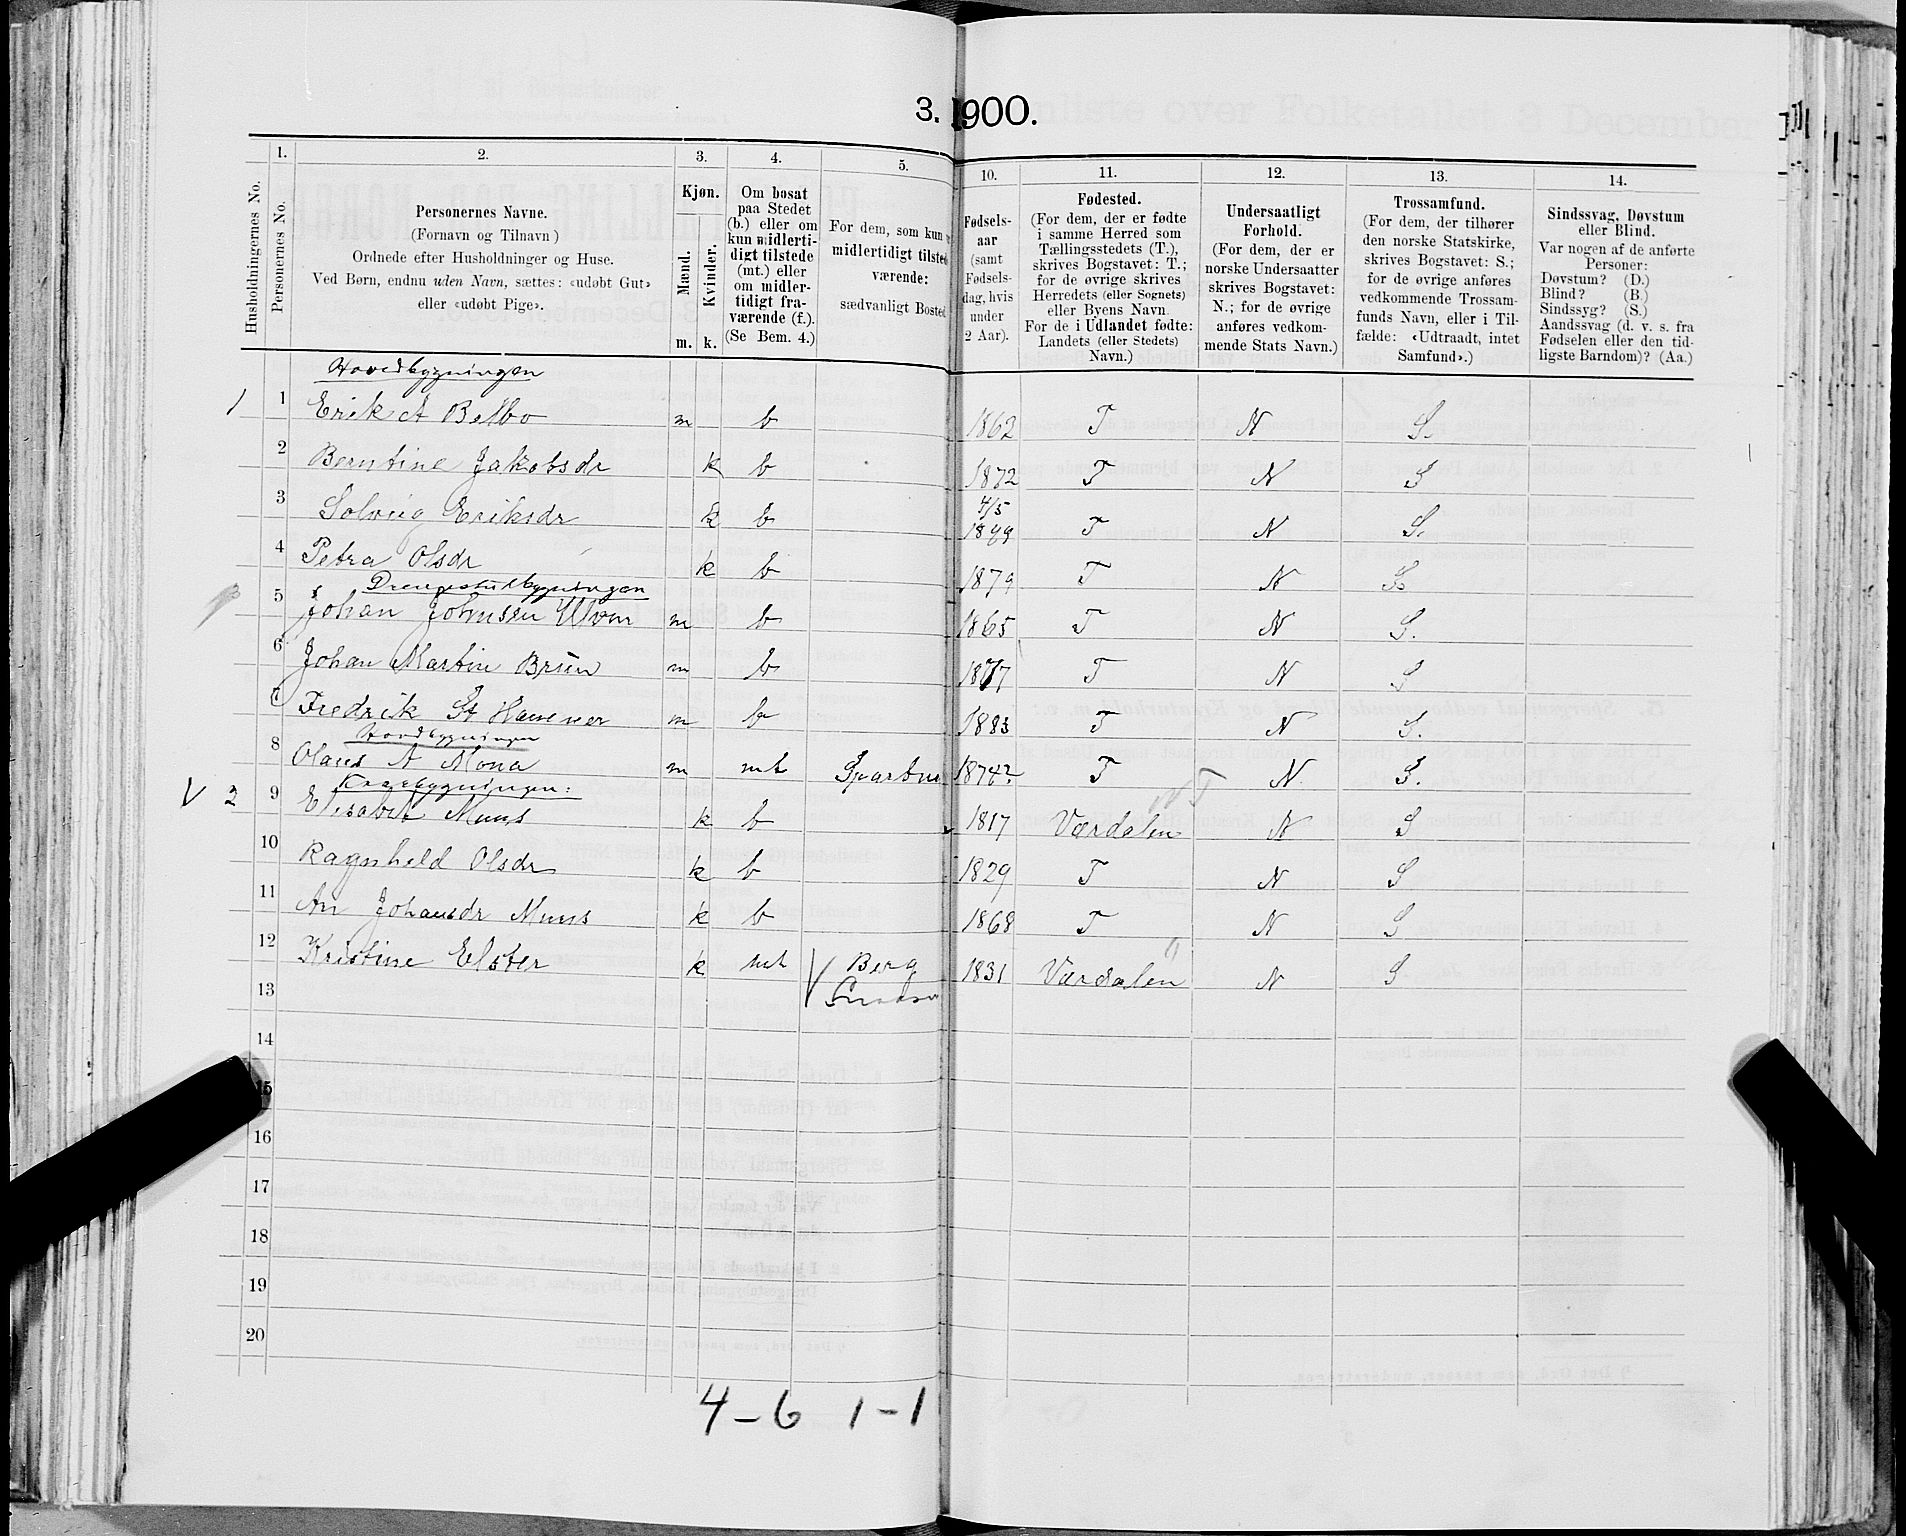 3. 1900.
1. 2. 3. 4. 5. 10. 11. 12. 13. 14.
Husholdningernes No.
Personernes No.
Personernes Navne.
(Fornavn og Tilnavn)
Ordnede efter Husholdninger og Huse.
Ved Børn, endnu uden Navn, sættes: «udøbt Gut»
eller «udøbt Pige».
Kjøn.
Mænd.
Kvinder.
m. k.
Om bosat
paa Stedet
(b.) eller om
kun midlerti-
digt tilstede
(mt.) eller
om midler-
tidigt fra-
værende (f.).
(Se Bem. 4.)
For dem, som kun
midlertidigt tilstede-
værende:
sædvanligt Bosted.
Fødsels-
aar
(samt
Fødsels-
dag, hvis
under
2 Aar).
Fødested.
(For dem, der er fødte
i samme Herred som
Tællingsstedets (T.),
skrives Bogstavet: T.;
for de øvrige skrives
Herredets (eller Sognets)
eller Byens Navn.
For de i Udlandet fødte:
Landets (eller Stedets)
Navn.)
Undersaatligt
Forhold.
(For dem, der er
norske Undersaatter
skrives Bogstavet:
N.; for de øvrige
anføres vedkom-
mende Stats Navn.)
Trossamfund.
(For dem, der tilhører
den norske Statskirke,
skrives Bogstavet: S.;
for de øvrige anføres
vedkommende Trossam-
funds Navn, eller i Til-
fælde: «Udtraadt, intet
Samfund».)
Sindssvag, Døvstum
eller Blind.
Var nogen af de anførte
Personer:
Døvstum? (D.)
Blind? (B.)
Sindssyg? (S.)
Aandssvag (d. v. s. fra
Fødselen eller den tid-
ligste Barndom)? (Aa.)
Hovedbygningen
1 1 Erik A Belbo m b 1862 T N S.
2 Berntine Jakobsdr k b 1872 T N S
3 Solveig Eriksdr k b 4/5 1899 T N S.
4 Petra Olsdr k b 1879 T N S
Drengestubygningen
5 Johan Johnsen m b 1865 T N S.
6 Johan Martin Brün m b 1877 T N S
7 Fredrik St m b 1883 T N S.
8 Olaus A Mona m mt 1874? T N. S.
V 2 9 Elisabet Muus k b 1817 Værdalen N S
10 Ragnheld Olsdr k b 1829 T N S
11 An Johansdr Muus k b 1868 T N S
12 Kristine Elster k mt V Berg 1831 Værdalen N S
13 Snaasa
14
15
16
17
18
19
20
4 - 6 1 - 1